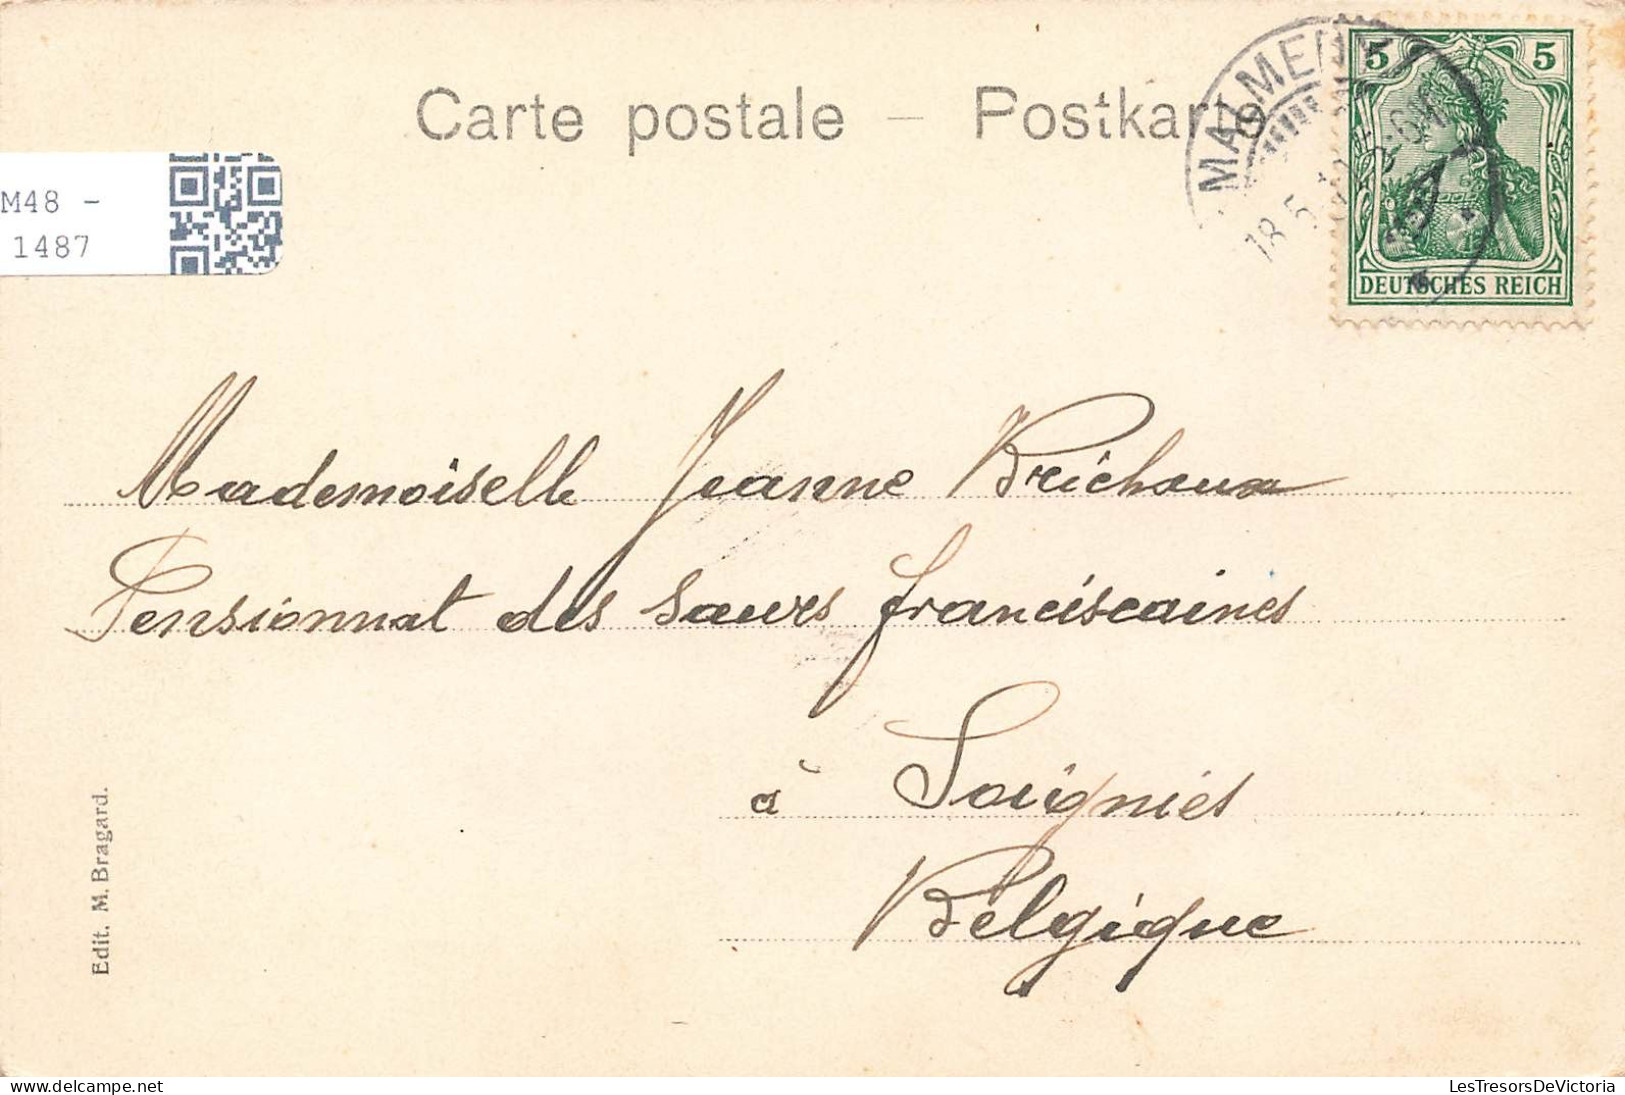 Carte postale – Postkarte
MALMEDY
18.5.
5 5
DEUTSCHES REICH
M48 -
1487
Mademoiselle Jeanne Brichaux
Pensionnat des Sœurs franciscaines
à Soignies
Belgique
Edit. M. Bragard.
LesTresorsDeVictoria